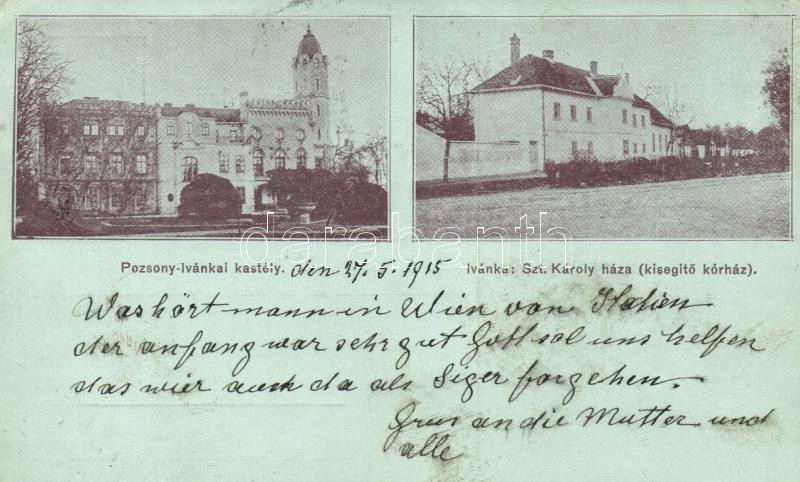 Pozsony-Ivánkai kastély. den 27. 5. 1915 Ivánka: Szt. Károly háza (kisegitő kórház).
darabanth
Was hört mann in Wien von Italien
der anfang war sehr gut Gott sol uns helfen
das wier auch da als Siger forgehen.
Grus an die Mutter und
alle